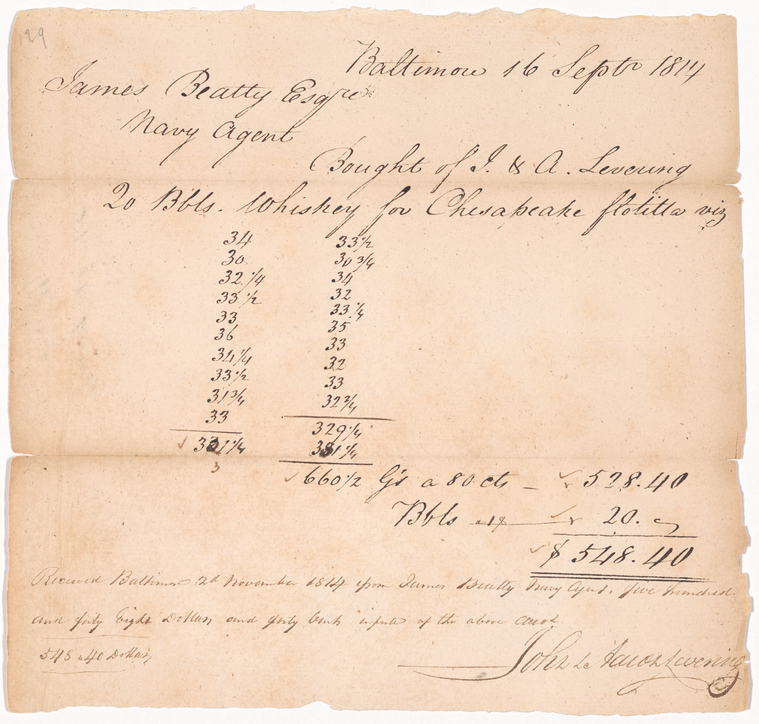 129
Baltimore 16 Septr 1814
James Beatty Esqre
Navy Agent
Bought of J. & A. Levering
20 Bbls. Whiskey for Chesapeake flotilla viz
34 33 1/2
30 30 3/4
32 1/4 34
33 1/2 32
33 33 1/4
36 35
34 1/4 33
33 1/2 32
31 3/4 33
33 32 3/4
331 1/4 329 1/4
3 331 1/4
660 1/2 Gs a 80 cts – 528.40
Bbls 20.
$ 548.40
Received Baltimore 2d November 1814 from James Beatty Navy Agent. five hundred
and forty Eight Dollars and forty Cents in of the above
548 40 Dollars
John Levering